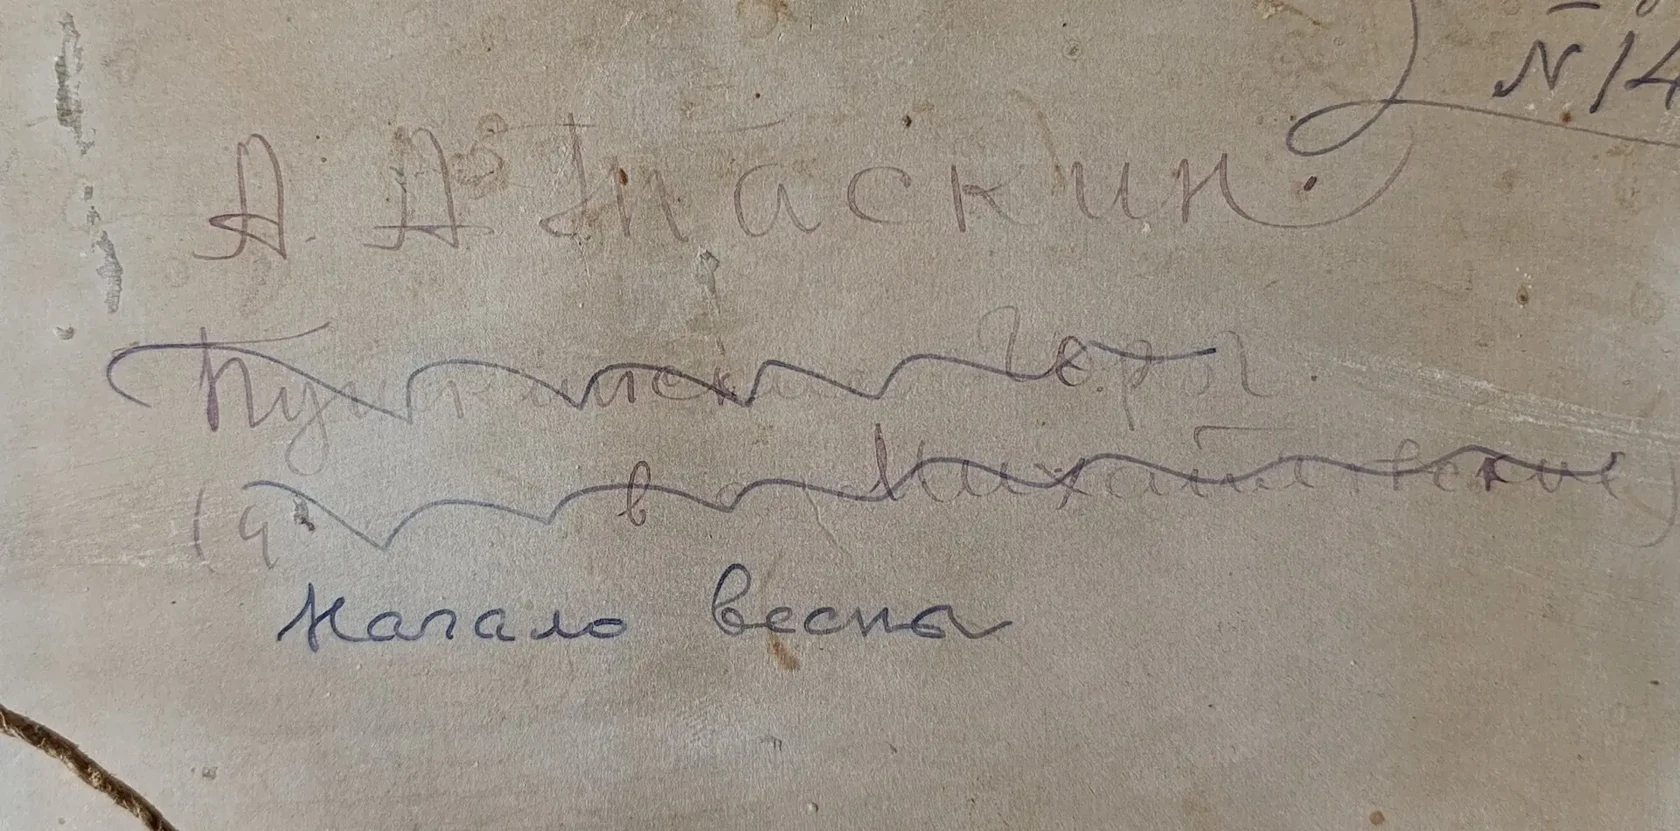 № 14
А. А. Таскин.
Пушкинские Горы.
в Михайловское)
Начало весны